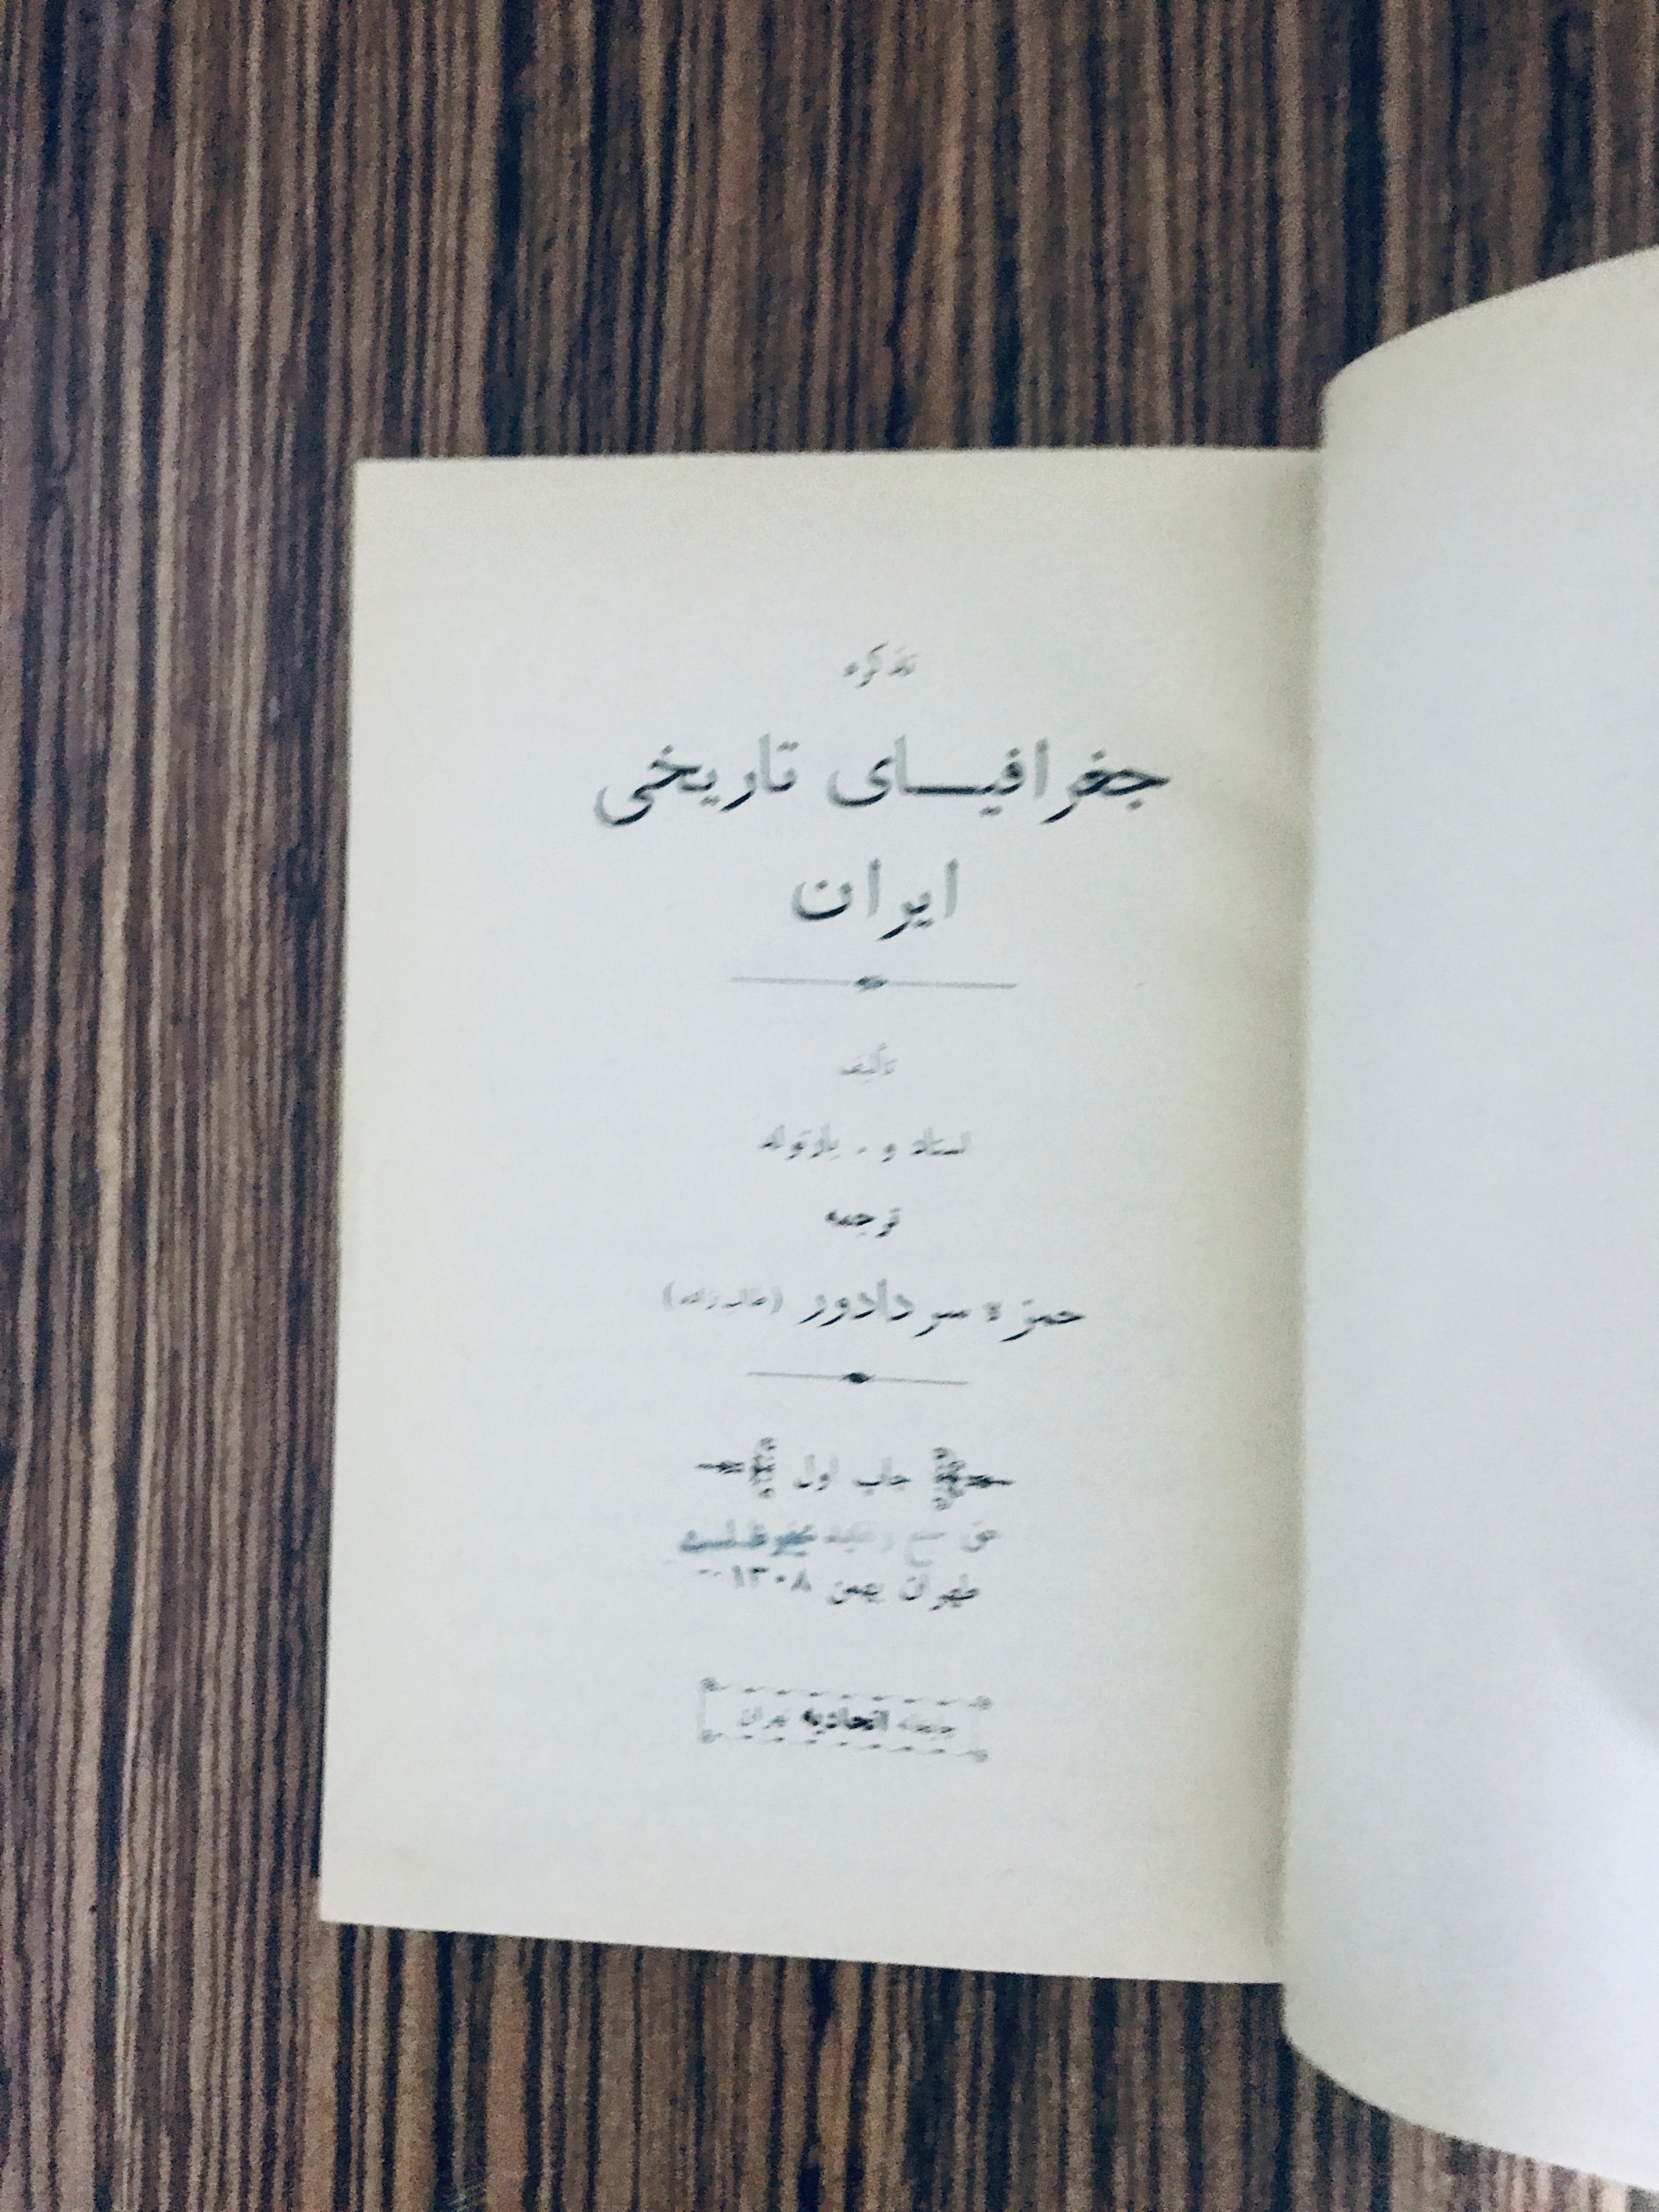 تذکره
جغرافیای تاریخی
ایران
تألیف
استاد و . بارتولد
ترجمه
حمزه سردادور (طالب زاده)
چاپ اول
حق طبع و تقلید محفوظ است
طهران بهمن ۱۳۰۸
اتحادیه طهران